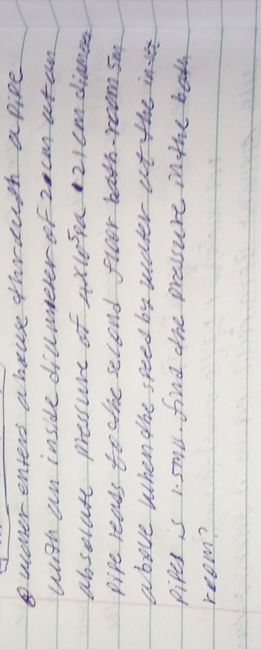 Q water enters a house through a pipe
with an inside diameter of 2.0cm at an
absolute pressure of 4x10⁵Pa 1cm diameter
pipe leads to the second floor bath-room 5m
above when the speed by water at the in
pipes is 1.5m/s find the pressure in the bath
room?